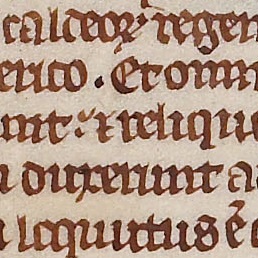 caldeoꝝ regem
erico . Et omn
unt : ⁊ relique
duxerunt a
loquutus ē